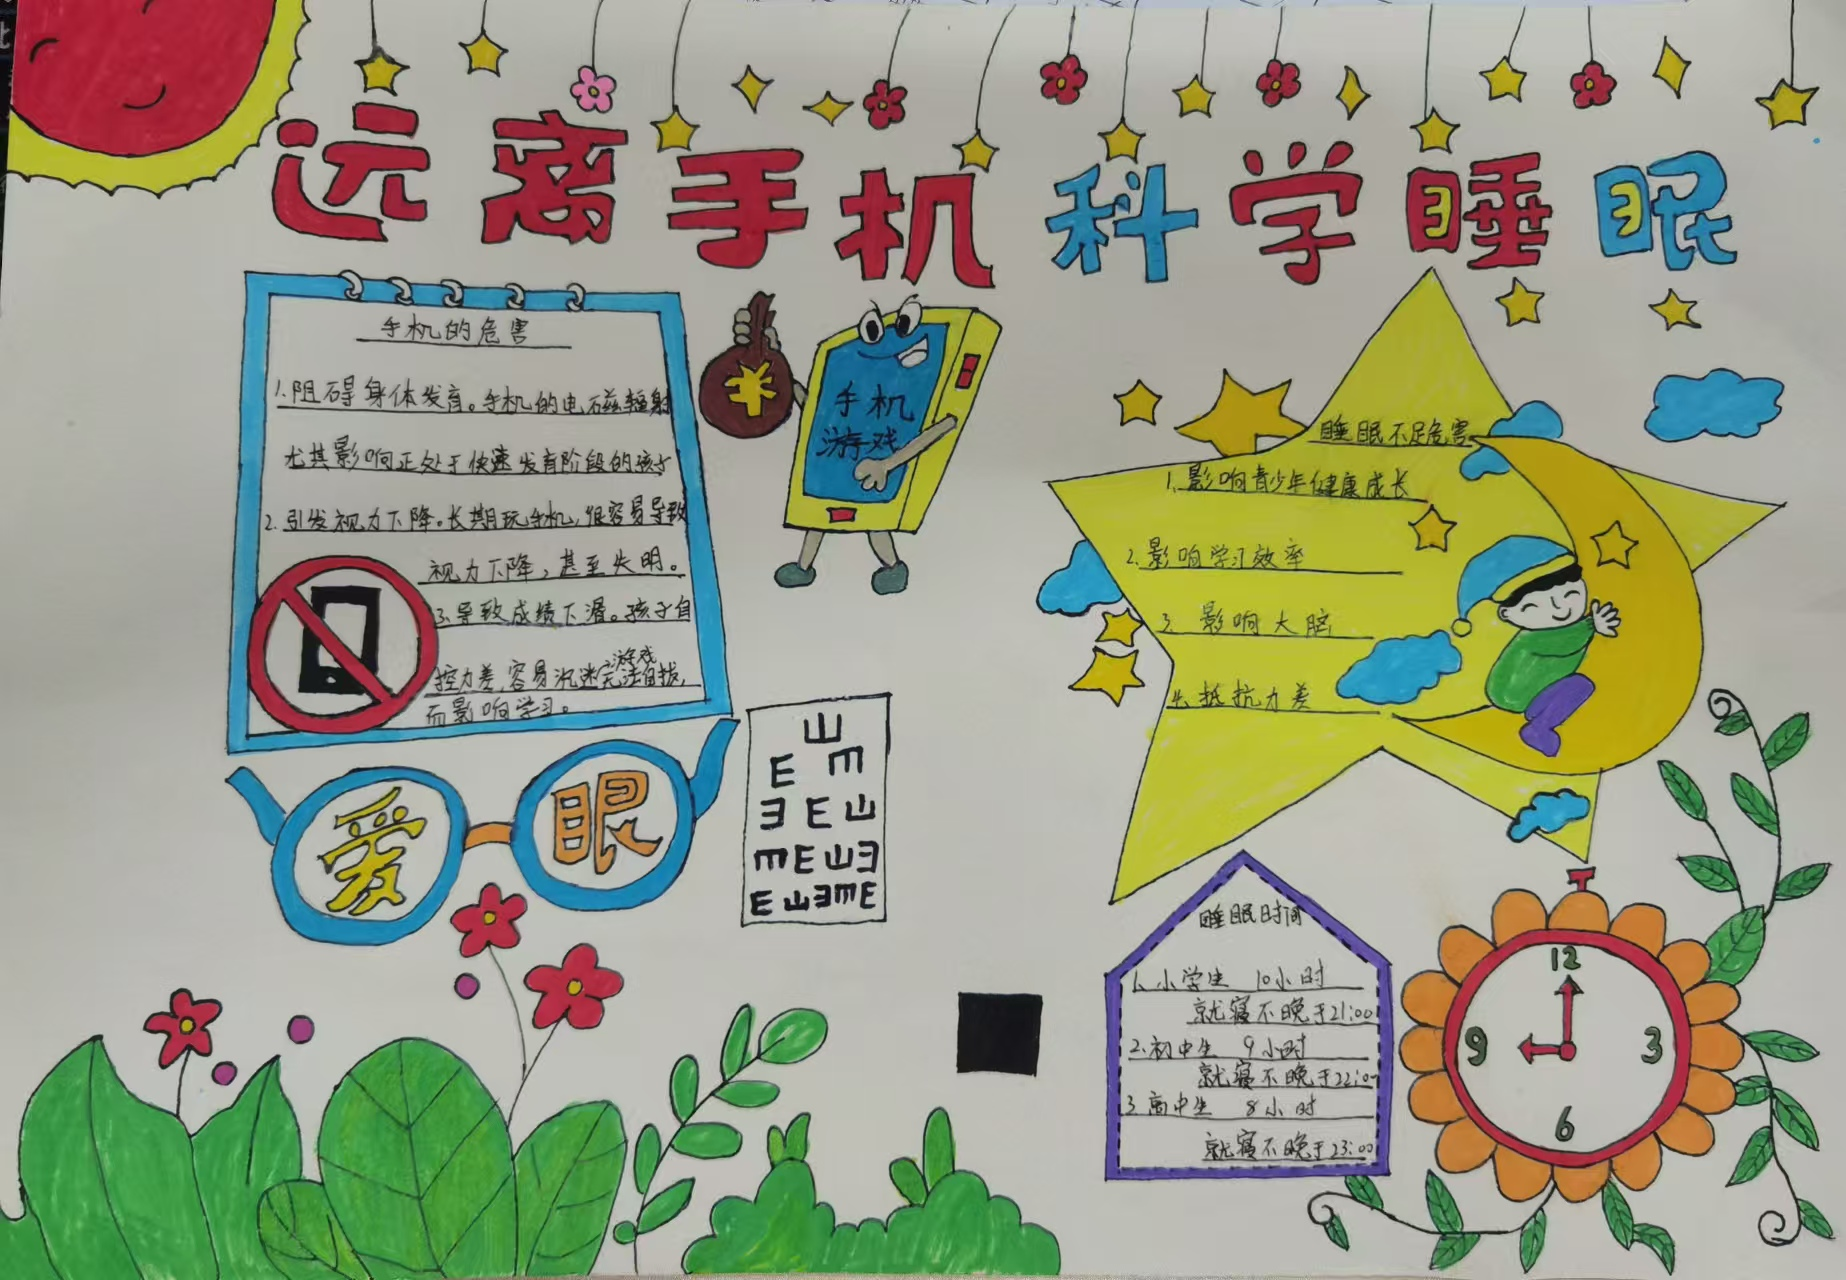 远离手机 科学睡眠
手机的危害
1.阻碍身体发育。手机的电磁辐射
尤其影响正处于快速发育阶段的孩子
2.引发视力下降。长期玩手机,很容易导致
视力下降,甚至失明。
3.导致成绩下滑。孩子自
控力差,容易沉迷游戏无法自拔,
而影响学习。
手机
游戏
爱眼
山
E m
ヨ E 山
m E 山 ヨ
E 山 ヨ m E
睡眠不足危害
1.影响青少年健康成长
2.影响学习效率
3.影响大脑
4.抵抗力差
睡眠时间
1.小学生 10小时
就寝不晚于21:00
2.初中生 9小时
就寝不晚于22:00
3.高中生 8小时
就寝不晚于23:00
12
9 3
6